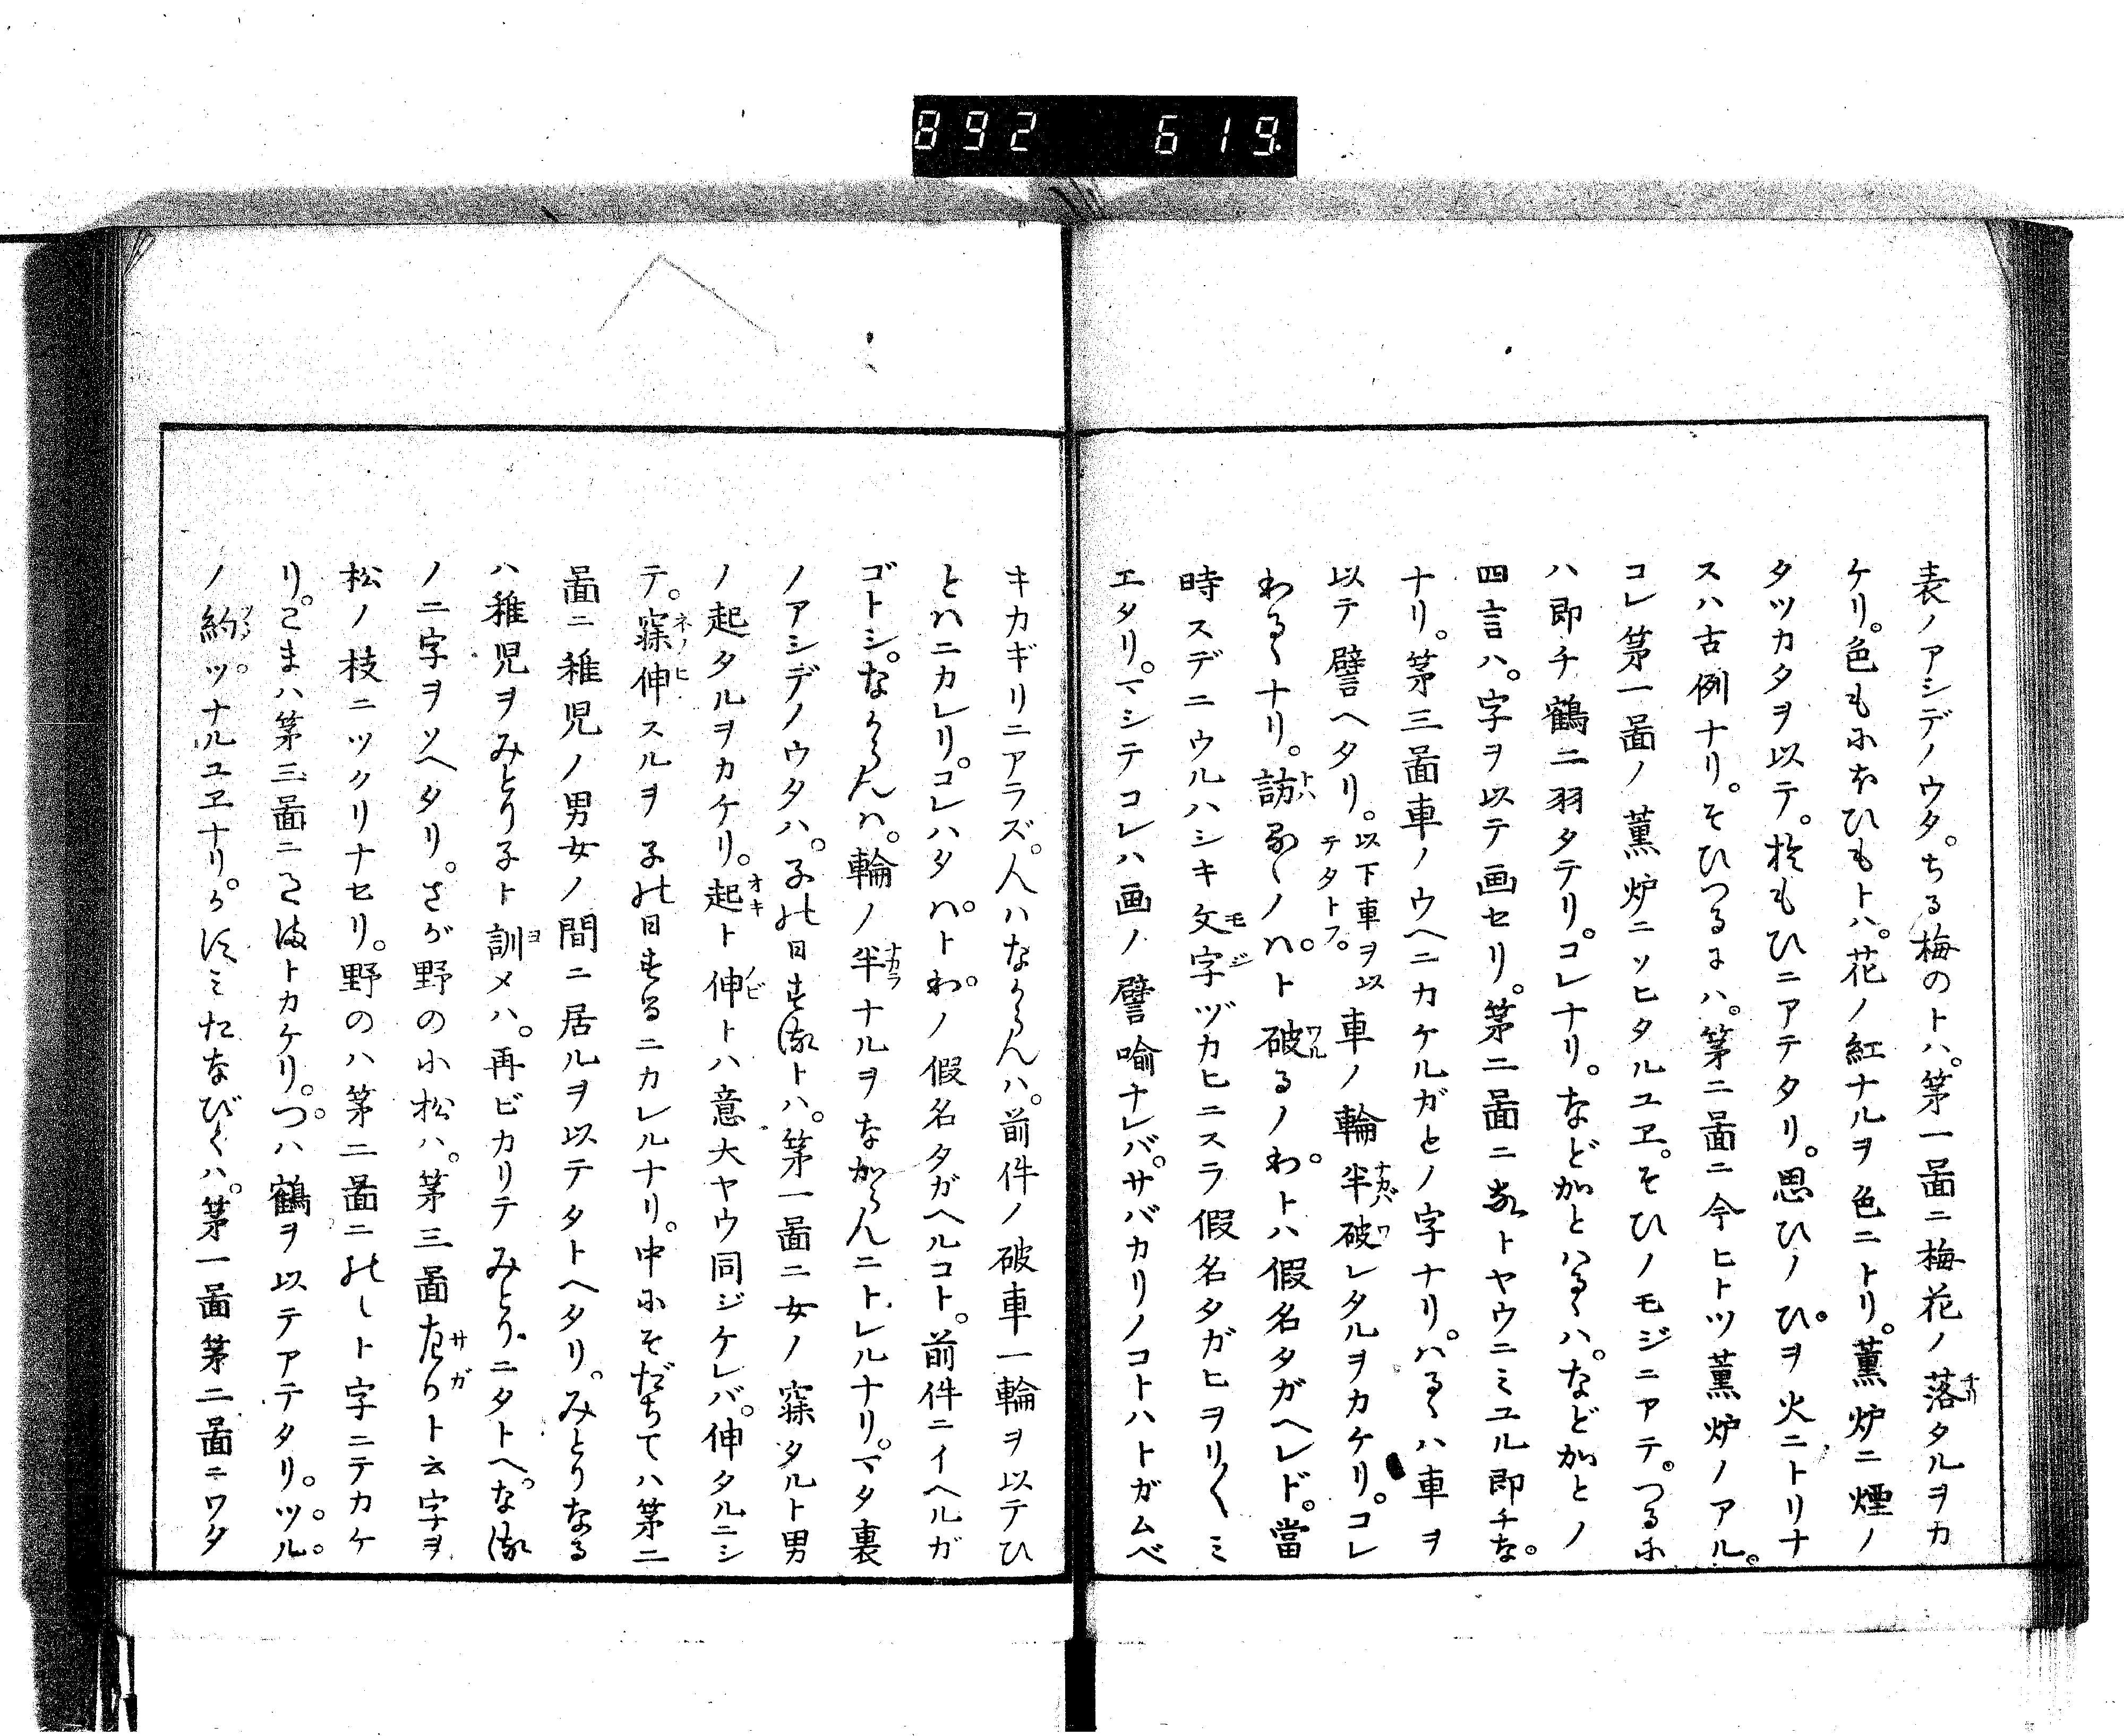 892 619
表ノアシデノウタ。ちる梅のトハ。第一啚ニ梅花ノ落タルヲカ
ケリ。色もにほひもトハ。花ノ紅ナルヲ色ニトリ。薫炉ニ煙ノ
タツカタヲ以テ。於もひニアテタリ。思ひノひヲ火ニトリナ
スハ古例ナリ。そひつるにハ。第二啚ニ今ヒトツ薫炉ノアル。
コレ第一啚ノ薫炉ニソヒタルユヱ。そひノモジニアテ。つるに
ハ即チ鶴二羽タテリ。コレナリ。などかとハるゝハ。などかとノ
四言ハ。字ヲ以テ画セリ。第二啚ニトヤウニミユル即チな。
ナリ。第三啚車ノウヘニカケルガとノ字ナリ。ハるゝハ車ヲ
以テ譬ヘタリ。以下車ヲ以テタトフ。車ノ輪半破レタルヲカケリ。コレ
わるゝナリ。訪るゝノハ。ト破るノわ。トハ假名タガヘレド。當
時スデニウルハシキ文字ヅカヒニスラ假名タガヒヲリ〱ミ
エタリ。マシテコレハ画ノ譬喩ナレバ。サバカリノコトハトガムベ
キカギリニアラズ。人ハなからんハ。前件ノ破車一輪ヲ以テひ
とハニカレリ。コレハタハ。トわ。ノ假名タガヘルコト。前件ニイヘルガ
ゴトシ。なからんハ。輪ノ半ナルヲなからんニトレルナリ。マタ裏
ノアシデノウタハ。子の日する トハ。第一啚ニ女ノ寐タルト男
ノ起タルヲカケリ。起ト伸トハ意大ヤウ同ジケレバ。伸タルニシ
テ。寐伸スルヲ子の日するニカレルナリ。中にそだちてハ第二
啚ニ稚児ノ男女ノ間ニ居ルヲ以テタトヘタリ。みとりなる
ハ稚児ヲみとり子ト訓メハ。再ビカリテみとりニタトヘ。なる
ノ二字ヲソヘタリ。さが野の小松ハ。第三啚左りト云字ヲ
松ノ枝ニツクリナセリ。野のハ第二啚ニのしト字ニテカケ
リ。こまハ第三啚ニこまトカケリ。つ。ハ鶴ヲ以テアテタリ。ツ。ル。
ノ約ツ。ナルユヱナリ。かすミたなびくハ。第一啚第二啚ニワタ